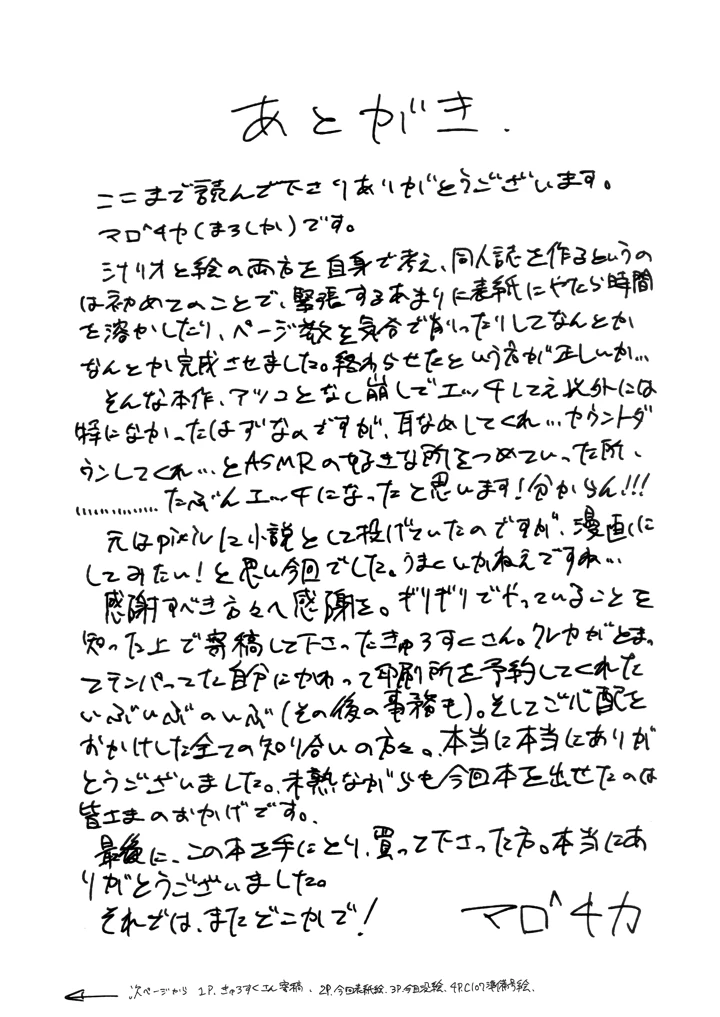 あとがき.
ここまで読んで下さりありがとうございます。
マロ^チカ(まろしか)です。
シナリオと絵の両方を自身で考え、同人誌を作るというの
は初めてのことで、緊張するあまりに表紙にやたら時間
を溶かしたり、ページ数を気合で削ったりしてなんとか
なんとか完成させました。終わらせたという方が正しいか…
そんな本作、アツコとなし崩しでエッチしてえ以外には
特になかったはずなのですが、耳なめしてくれ…カウントダ
ウンしてくれ…とASMRの好きな所をつめていった所、
……………たぶんエッチになったと思います!分からん!!!
元はpixivに小説として投げていたのですが、漫画に
してみたい!と思い今回でした。うまくいかねえですね…
感謝すべき方々へ感謝を。ギリギリでやっていることを
知った上で寄稿して下さったきゅろすくさん。クレカがとまっ
てテンパってた自分にかわって印刷所を予約してくれた
いぶいぶのいぶ(その後の事務も)。そしてご心配を
おかけした全ての知り合いの方々。本当に本当にありが
とうございました。未熟ながらも今回本を出せたのは
皆さまのおかげです。
最後に、この本を手にとり、買って下さった方。本当にあ
りがとうございました。
それでは、またどこかで!
マロ^チカ
次ページから 1P.きゅろすくさん寄稿、2P.今回表紙絵、3P.今回没絵、4P.C107準備号絵、